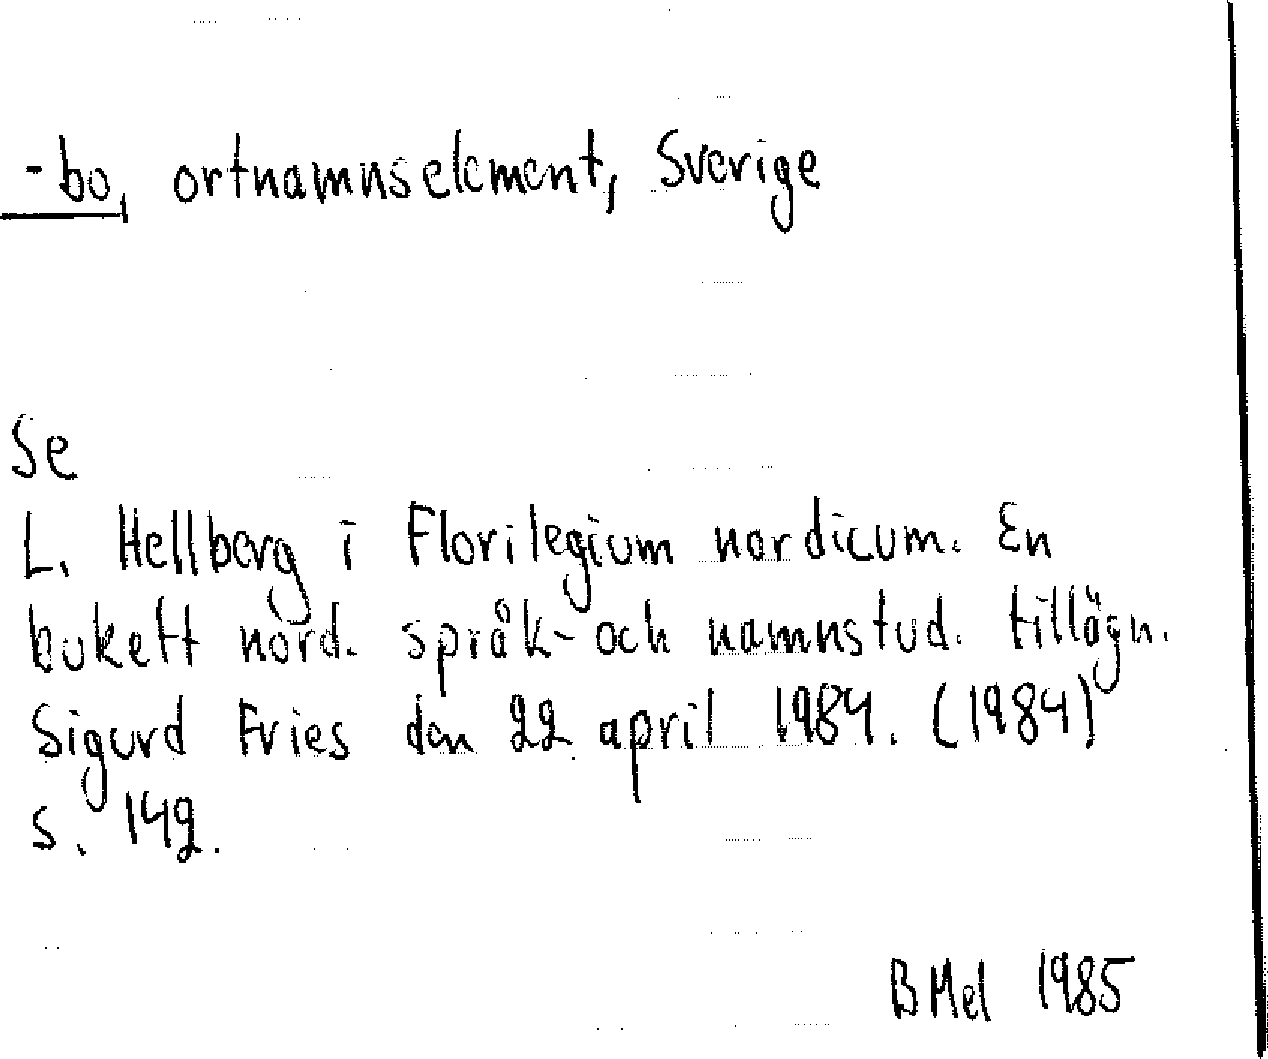 -bo, ortnamnselement, Sverige
Se
L. Hellberg i Florilegium nordicum. En
bukett nord. språk- och namnstud. tillägn.
Sigurd Fries den 22 april 1984. (1984)
s. 142.
BMel 1985